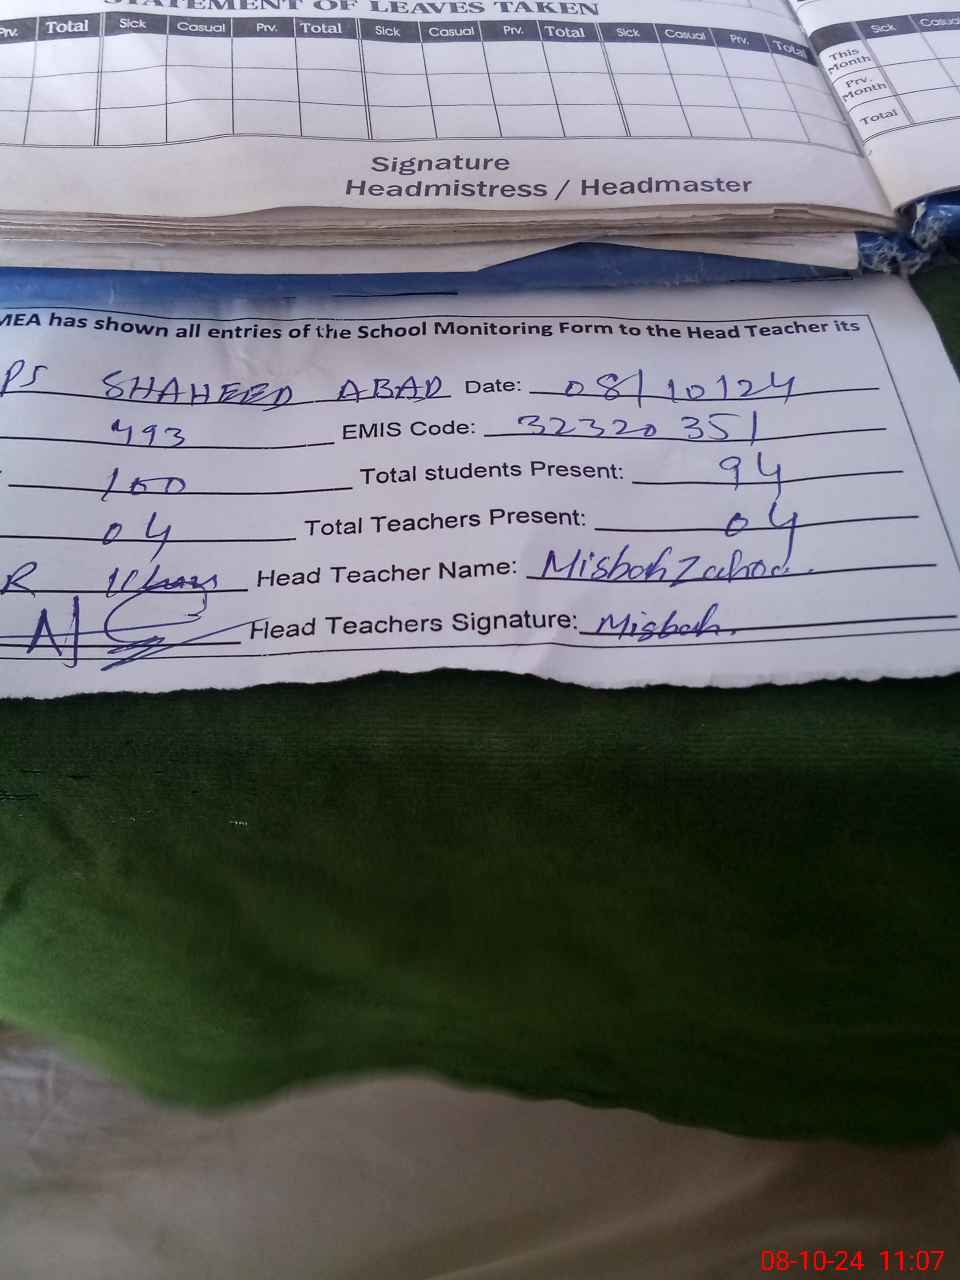 STATEMENT OF LEAVES TAKEN
Prv. Total Sick Casual Prv. Total Sick Casual Prv. Total Sick Casual Prv. Total
Sick Casual
This Month
Prv. Month
Total
Signature
Headmistress / Headmaster
MEA has shown all entries of the School Monitoring Form to the Head Teacher its
PS SHAHEED ABAD Date: 08/10/24
493 EMIS Code: 32320351
100 Total students Present: 94
04 Total Teachers Present: 04
R Head Teacher Name: Misbah Zahod.
Head Teachers Signature: Misbah.
08-10-24 11:07